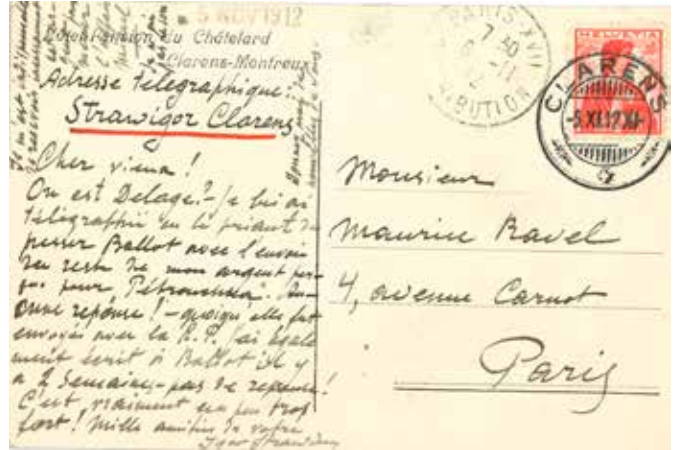 5 NOV 1912
Hôtel-Pension du Châtelard
Clarens-Montreux
Adresse télégraphique:
Strawigor Clarens
Cher vieux!
Ou est Delage? - Je lui ai
télégraphié en le priant de
presser Ballot avec l'envoi
du reste de mon argent per-
çu pour "Pétrouchka". Au-
cune réponse! - quoique elle fut
envoyée avec la R.P. J'ai égale
ment écrit à Ballot il y
a 2 semaines - pas de reponse!
C'est vraiment un peu trop
fort! Mille amitiés de votre
Igor Strawinsky
PARIS·XVII
7 30
DISTRIBUTION
HELVETIA
CLARENS
-5.XI.12.XI-
Monsieur
Maurice Ravel
4, avenue Carnot
Paris